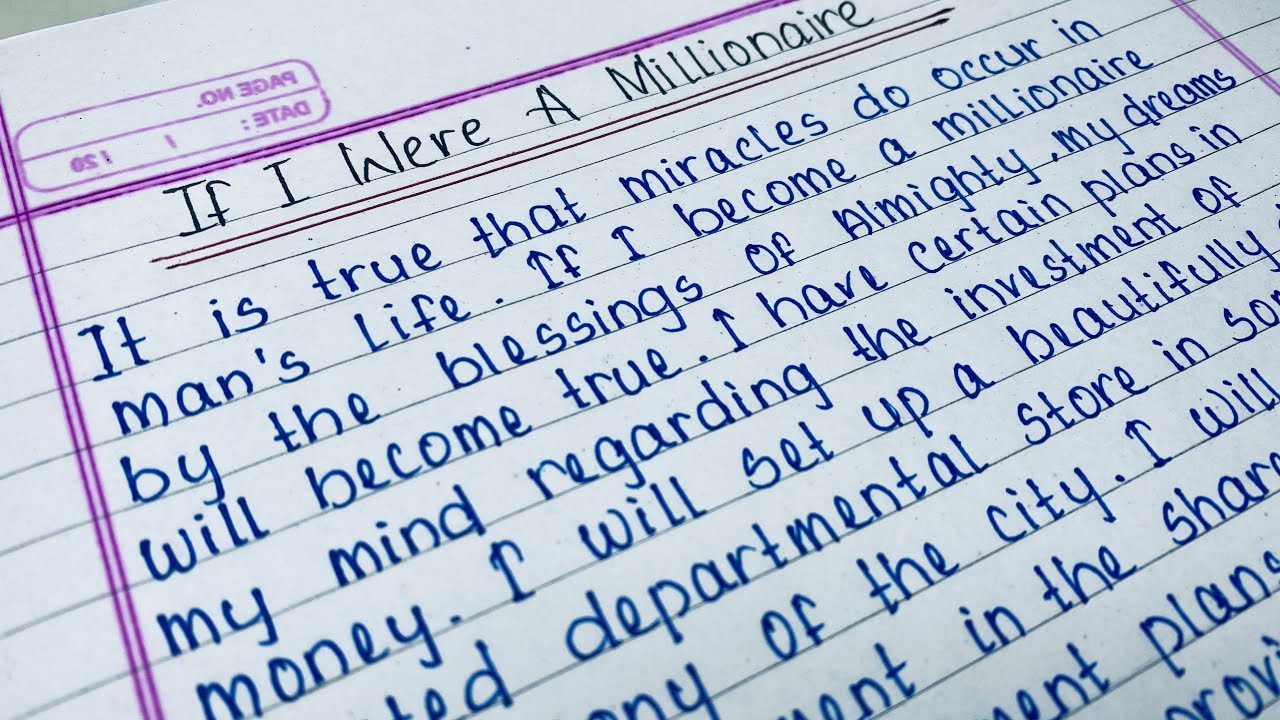 PAGE NO.
DATE: / / 20
If I Were A Millionaire
It is true that miracles do occur in
man's life. If I become a millionaire
by the blessings of Almighty, my dreams
will become true. I have certain plans in
my mind regarding the investment of
money. I will set up a beautifully
departmental store in
of the city. I will
in the
plans